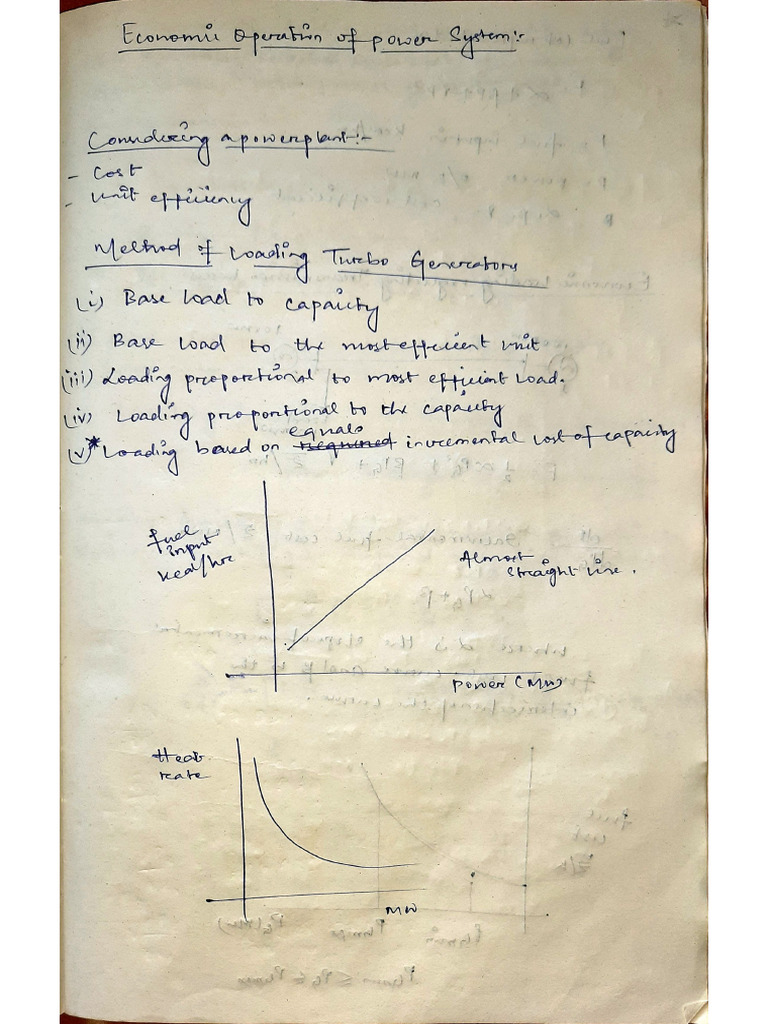 Economic Operation of Power System:-
Considering a powerplant:-
- Cost
- Unit efficiency
Method of Loading Turbo Generators
(i) Base load to capacity
(ii) Base load to the most efficient unit
(iii) Loading proportional to most efficient load.
(iv) Loading proportional to the capacity
equals
(v)* Loading based on incremental cost of capacity
fuel
input
kcal/hr
Almost
straight line.
Power (MW)
Heat
rate
MW